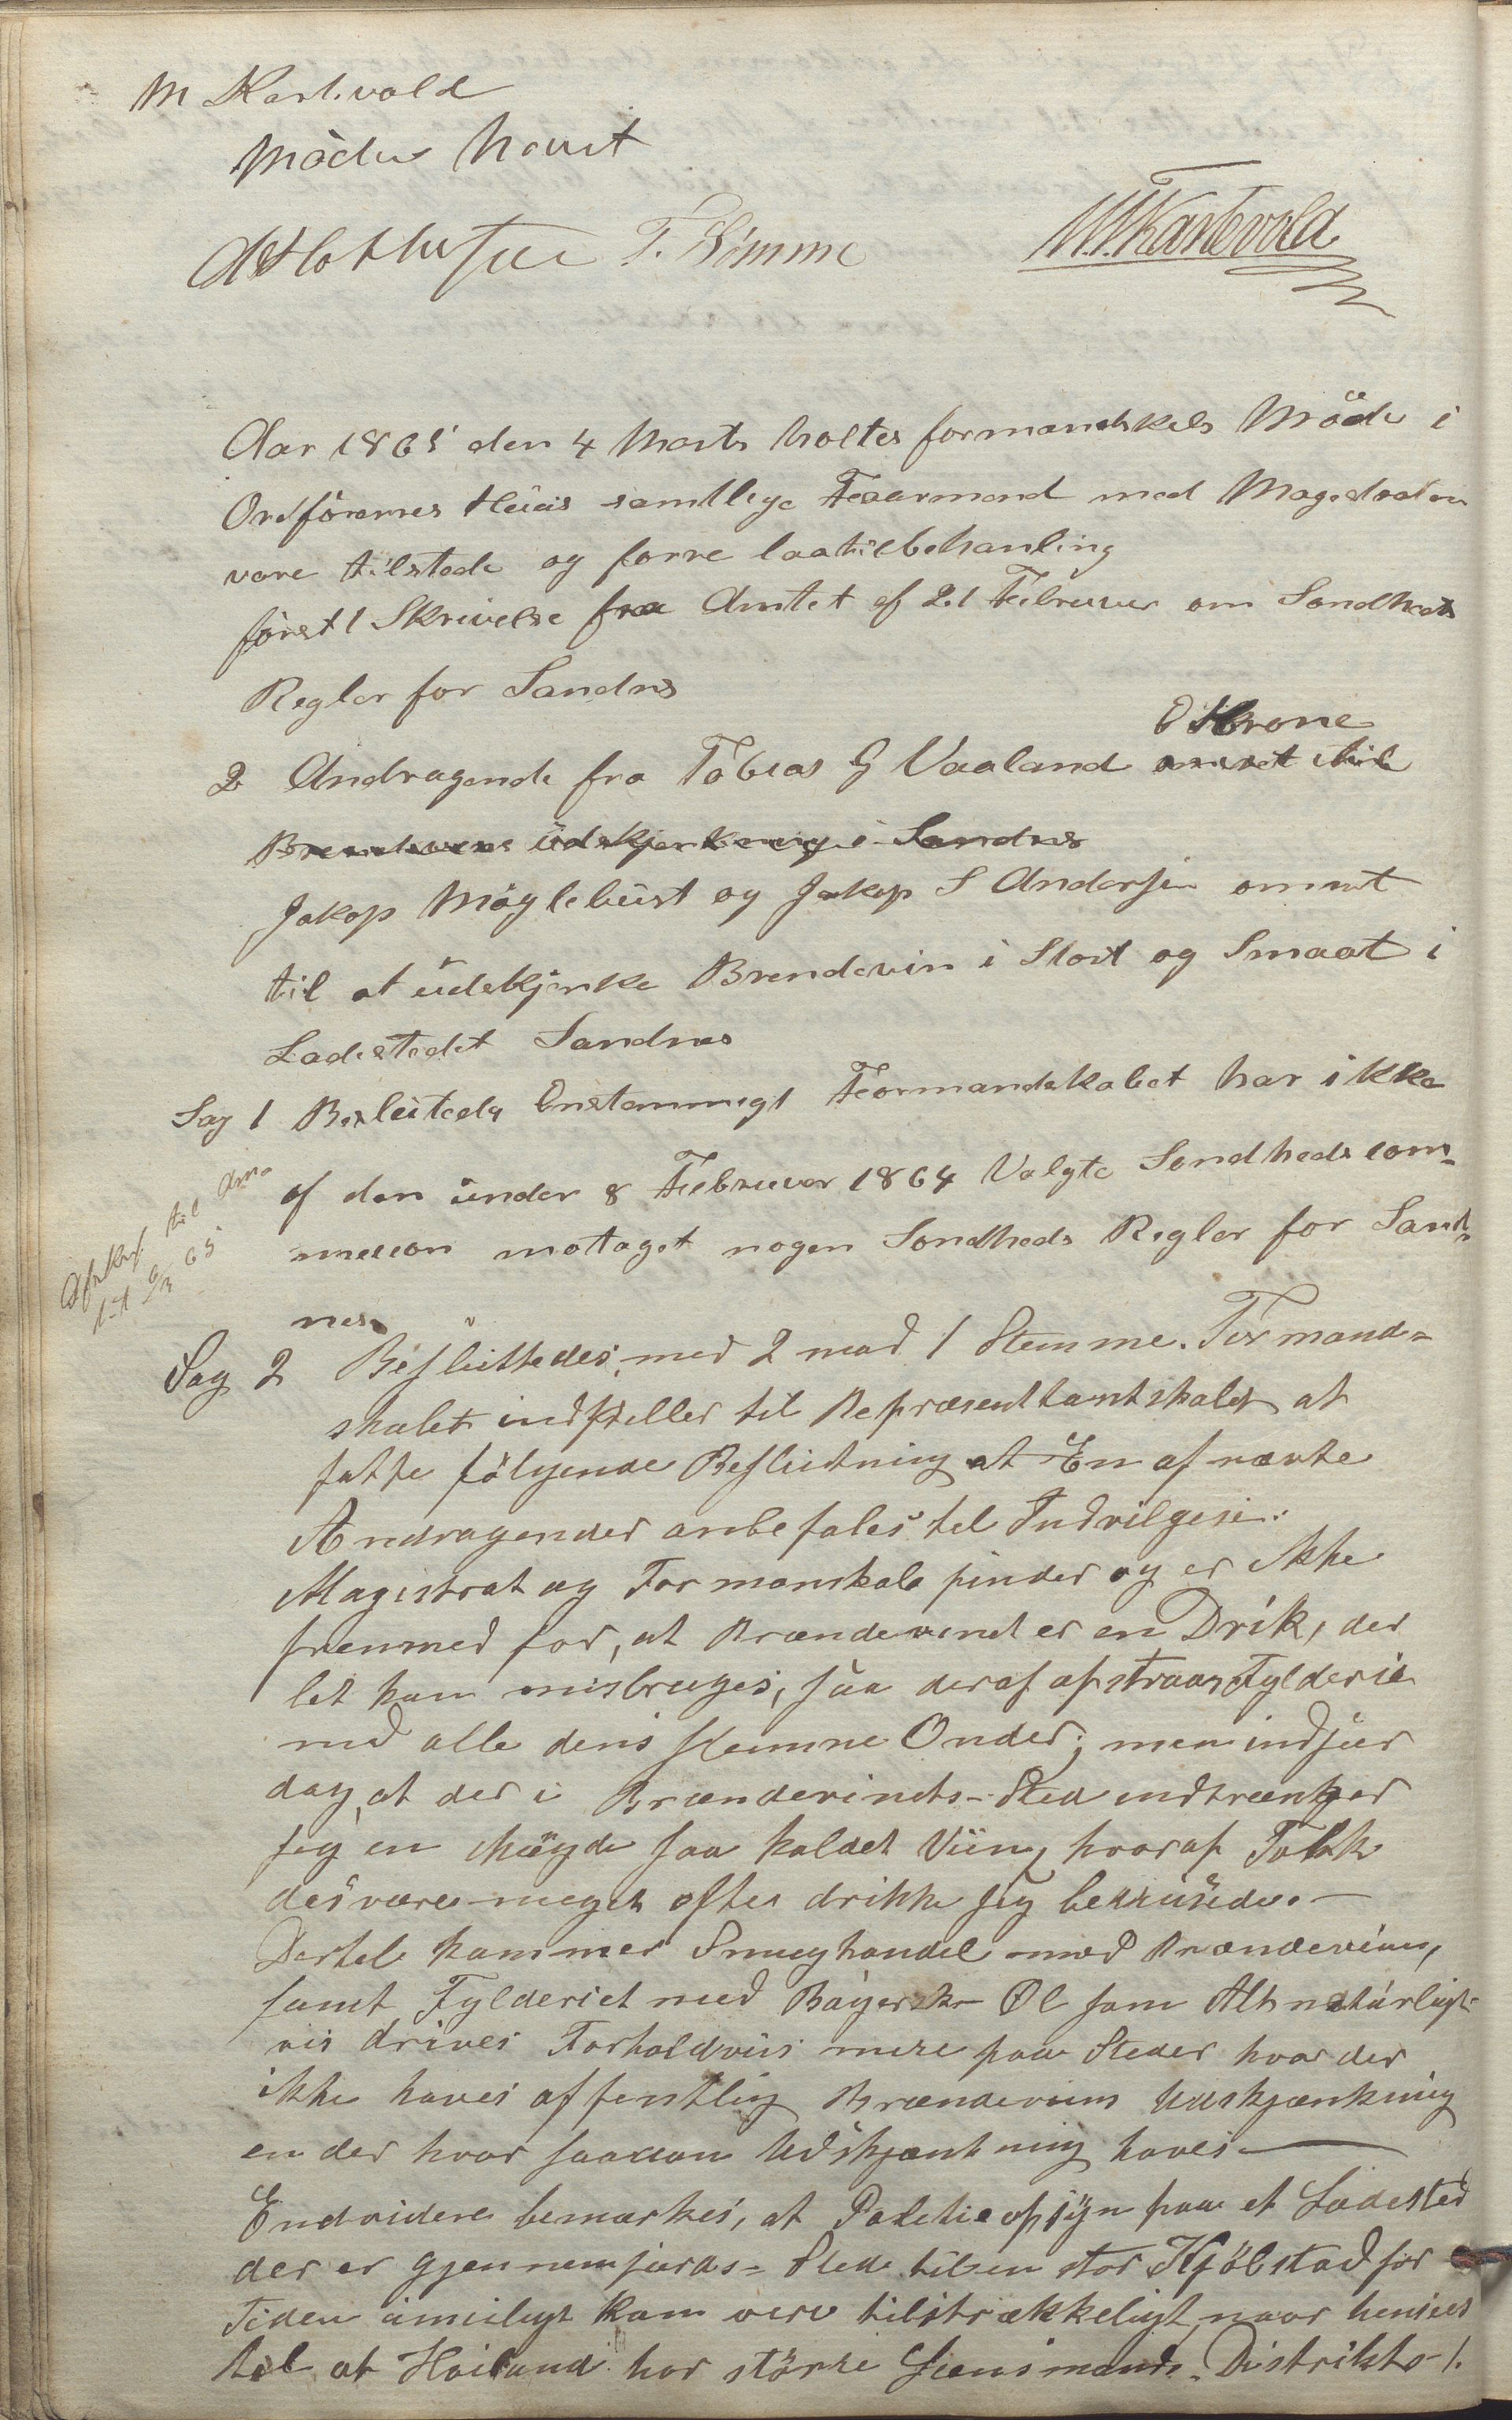 M Kartevold
Möder Norut
T. Kömme M. A. Kartevold
Aar 1865 den 4 Marts holtes formandskabs Möde i
Ordförernes Huus samtlige Formænd med Magestraten
vare tilstede og forre laa til behanling
först 1 Skrivelse fra Amtet af 21 Februar om Sondheds
Regler for Sandnes
O Krone
2 Andragende fra Tobias G Vaaland omret til
Brendevins Udskjenkning i Sandnes
Jakop Möglebust og Jakop S Andersen omret
til at udskjenke Brendevin i Stort og Smaat i
Ladestedet Sandnes
Sag 1 Besluttedes Enstemmigt Formandskabet har ikke
Afskrf. til Am
tet 9/3 65
af den under 8 Februar 1864 Valgte Sondheds com-
mission mottaget nogen Sondheds Regler for Sand-
nes
Sag 2 Besluttedes med 2 mod 1 Stemme. Formand-
skabet indstiller til Repræsentantskabet at
fatte følgende Beslutning at En af nævnte
Andragender anbefales til Indvilgesse.
Magistrat og Formanskab finder og er ikke
fremmed for, at Brændevinet er en Drik, der
let kan misbruges, saa deraf afstraar Fylderie
med alle dens slemme Onder; men indseer
dog, at der i Brændevinets Sted indtrænger
sig en Mængde saa kaldet Viin, hvoraf Folk
desværre meget ofte drikke sig berusede. —
Dertil kommer Smughandel med Brændeviin,
samt Fylderiet med Bayersk Øl som Alt naturligt-
vis drives Forholdviis mere paa Steder hvor der
ikke haves offentlig Brændeviins Udskjænkning
en der hvor saadan Udskjænkning haves —
Endvidere bemærkes, at Politieopsyn paa et Ladested
der er gjennemfærds-Sted til en stor Kjøbstad for
Tiden umuligt kan være tilstrækkeligt naar henseees
til at Høiland har større Lensmands-Distrikt /.